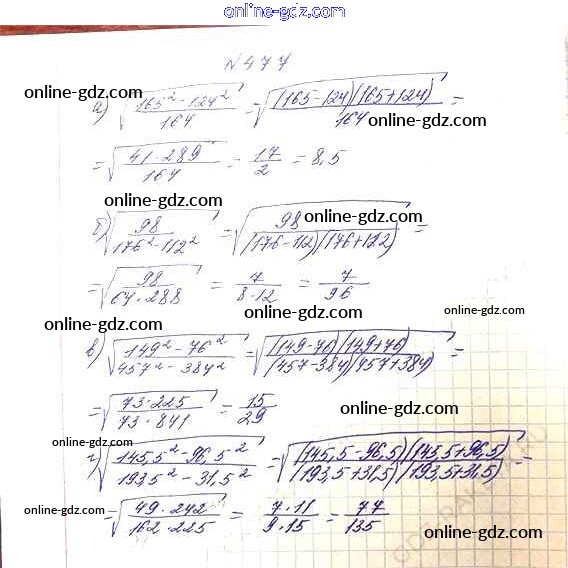 online-gdz.com
№477
online-gdz.com
а) √((165² - 124²)/164) = √((165-124)(165+124)/164) =
online-gdz.com
= √(41·289/164) = 17/2 = 8,5
online-gdz.com
б) √(98/(176² - 112²)) = √(98/((176-112)(176+112))) =
online-gdz.com
= √(98/(64·288)) = 7/(8·12) = 7/96
online-gdz.com
online-gdz.com
в) √((149² - 76²)/(457² - 384²)) = √((149-76)(149+76)/((457-384)(457+384))) =
online-gdz.com
= √(73·225/(73·841)) = 15/29
online-gdz.com
online-gdz.com
г) √((145,5² - 96,5²)/(193,5² - 31,5²)) = √((145,5-96,5)(145,5+96,5)/((193,5+31,5)(193,5+31,5))) =
= √(49·242/(162·225)) = (7·11)/(9·15) = 77/135
online-gdz.com
online-gdz.com
online-gdz.com